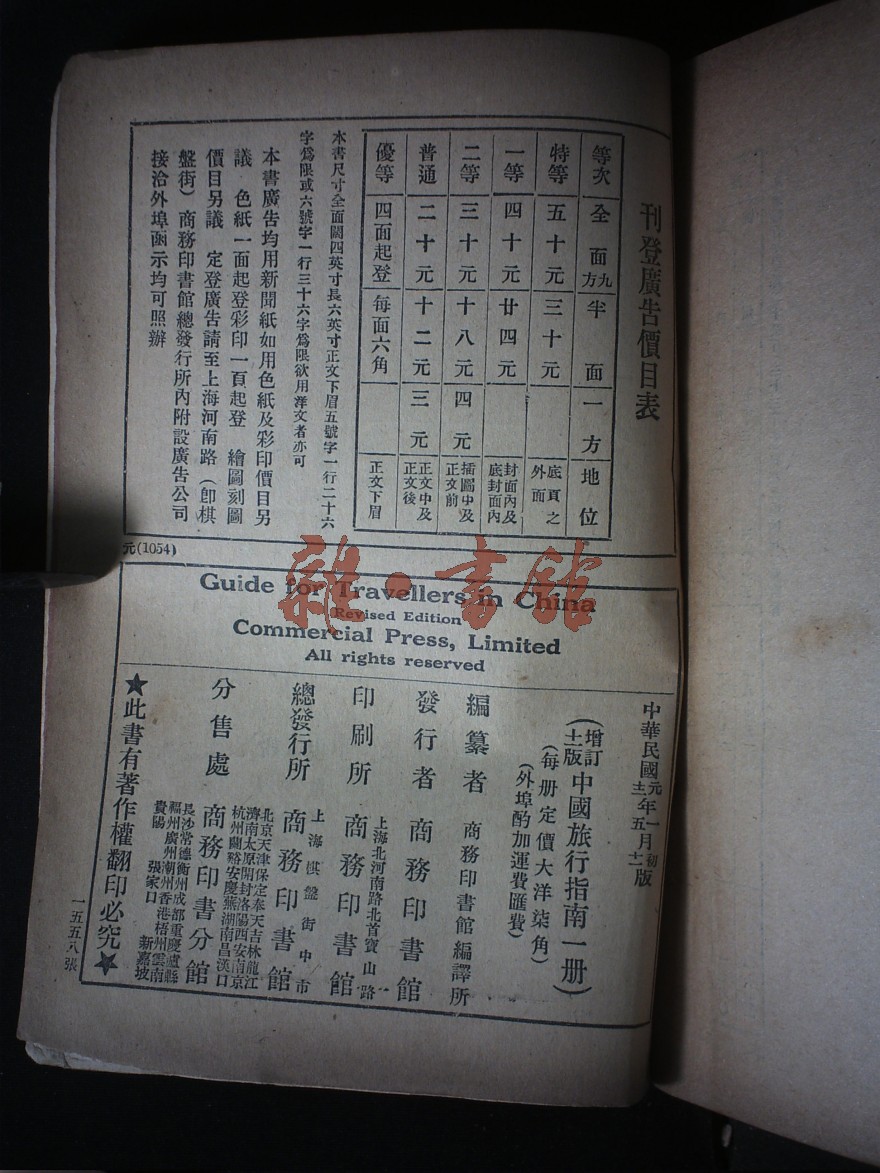 刊登廣告價目表
等次 全面九方 半面 一方 地位
特等 五十元 三十元 底頁之外面
一等 四十元 廿四元 封面內及底封面內
二等 三十元 十八元 四元 插圖中及正文前
普通 二十元 十二元 三元 正文中及正文後
優等 四面起登 每面六角 正文下眉
本書尺寸全面闊四英寸長六英寸正文下眉五號字一行二十六
字爲限或六號字一行三十六字爲限欲用洋文者亦可
本書廣告均用新聞紙如用色紙及彩印價目另
議 色紙一面起登彩印一頁起登 繪圖刻圖
價目另議 定登廣告請至上海河南路(卽棋
盤街)商務印書館總發行所內附設廣告公司
接洽外埠函示均可照辦
元(1054)
雜·書館
Guide for Travellers in China
Revised Edition
Commercial Press, Limited
All rights reserved
中華民國元年一月初版
十二年五月十二版
(增訂十二版中國旅行指南一册)
(每册定價大洋柒角)
(外埠酌加運費匯費)
編纂者 商務印書館編譯所
發行者 商務印書館
上海北河南路北首寶山路
印刷所 商務印書館
上海棋盤街中市
總發行所 商務印書館
北京天津保定奉天吉林龍江
濟南太原開封洛陽西安南京
杭州蘭谿安慶蕪湖南昌漢口
分售處 商務印書分館
長沙常德衡州成都重慶瀘縣
福州廣州潮州香港梧州雲南
貴陽 張家口 新嘉坡
★此書有著作權翻印必究★
一五五八張